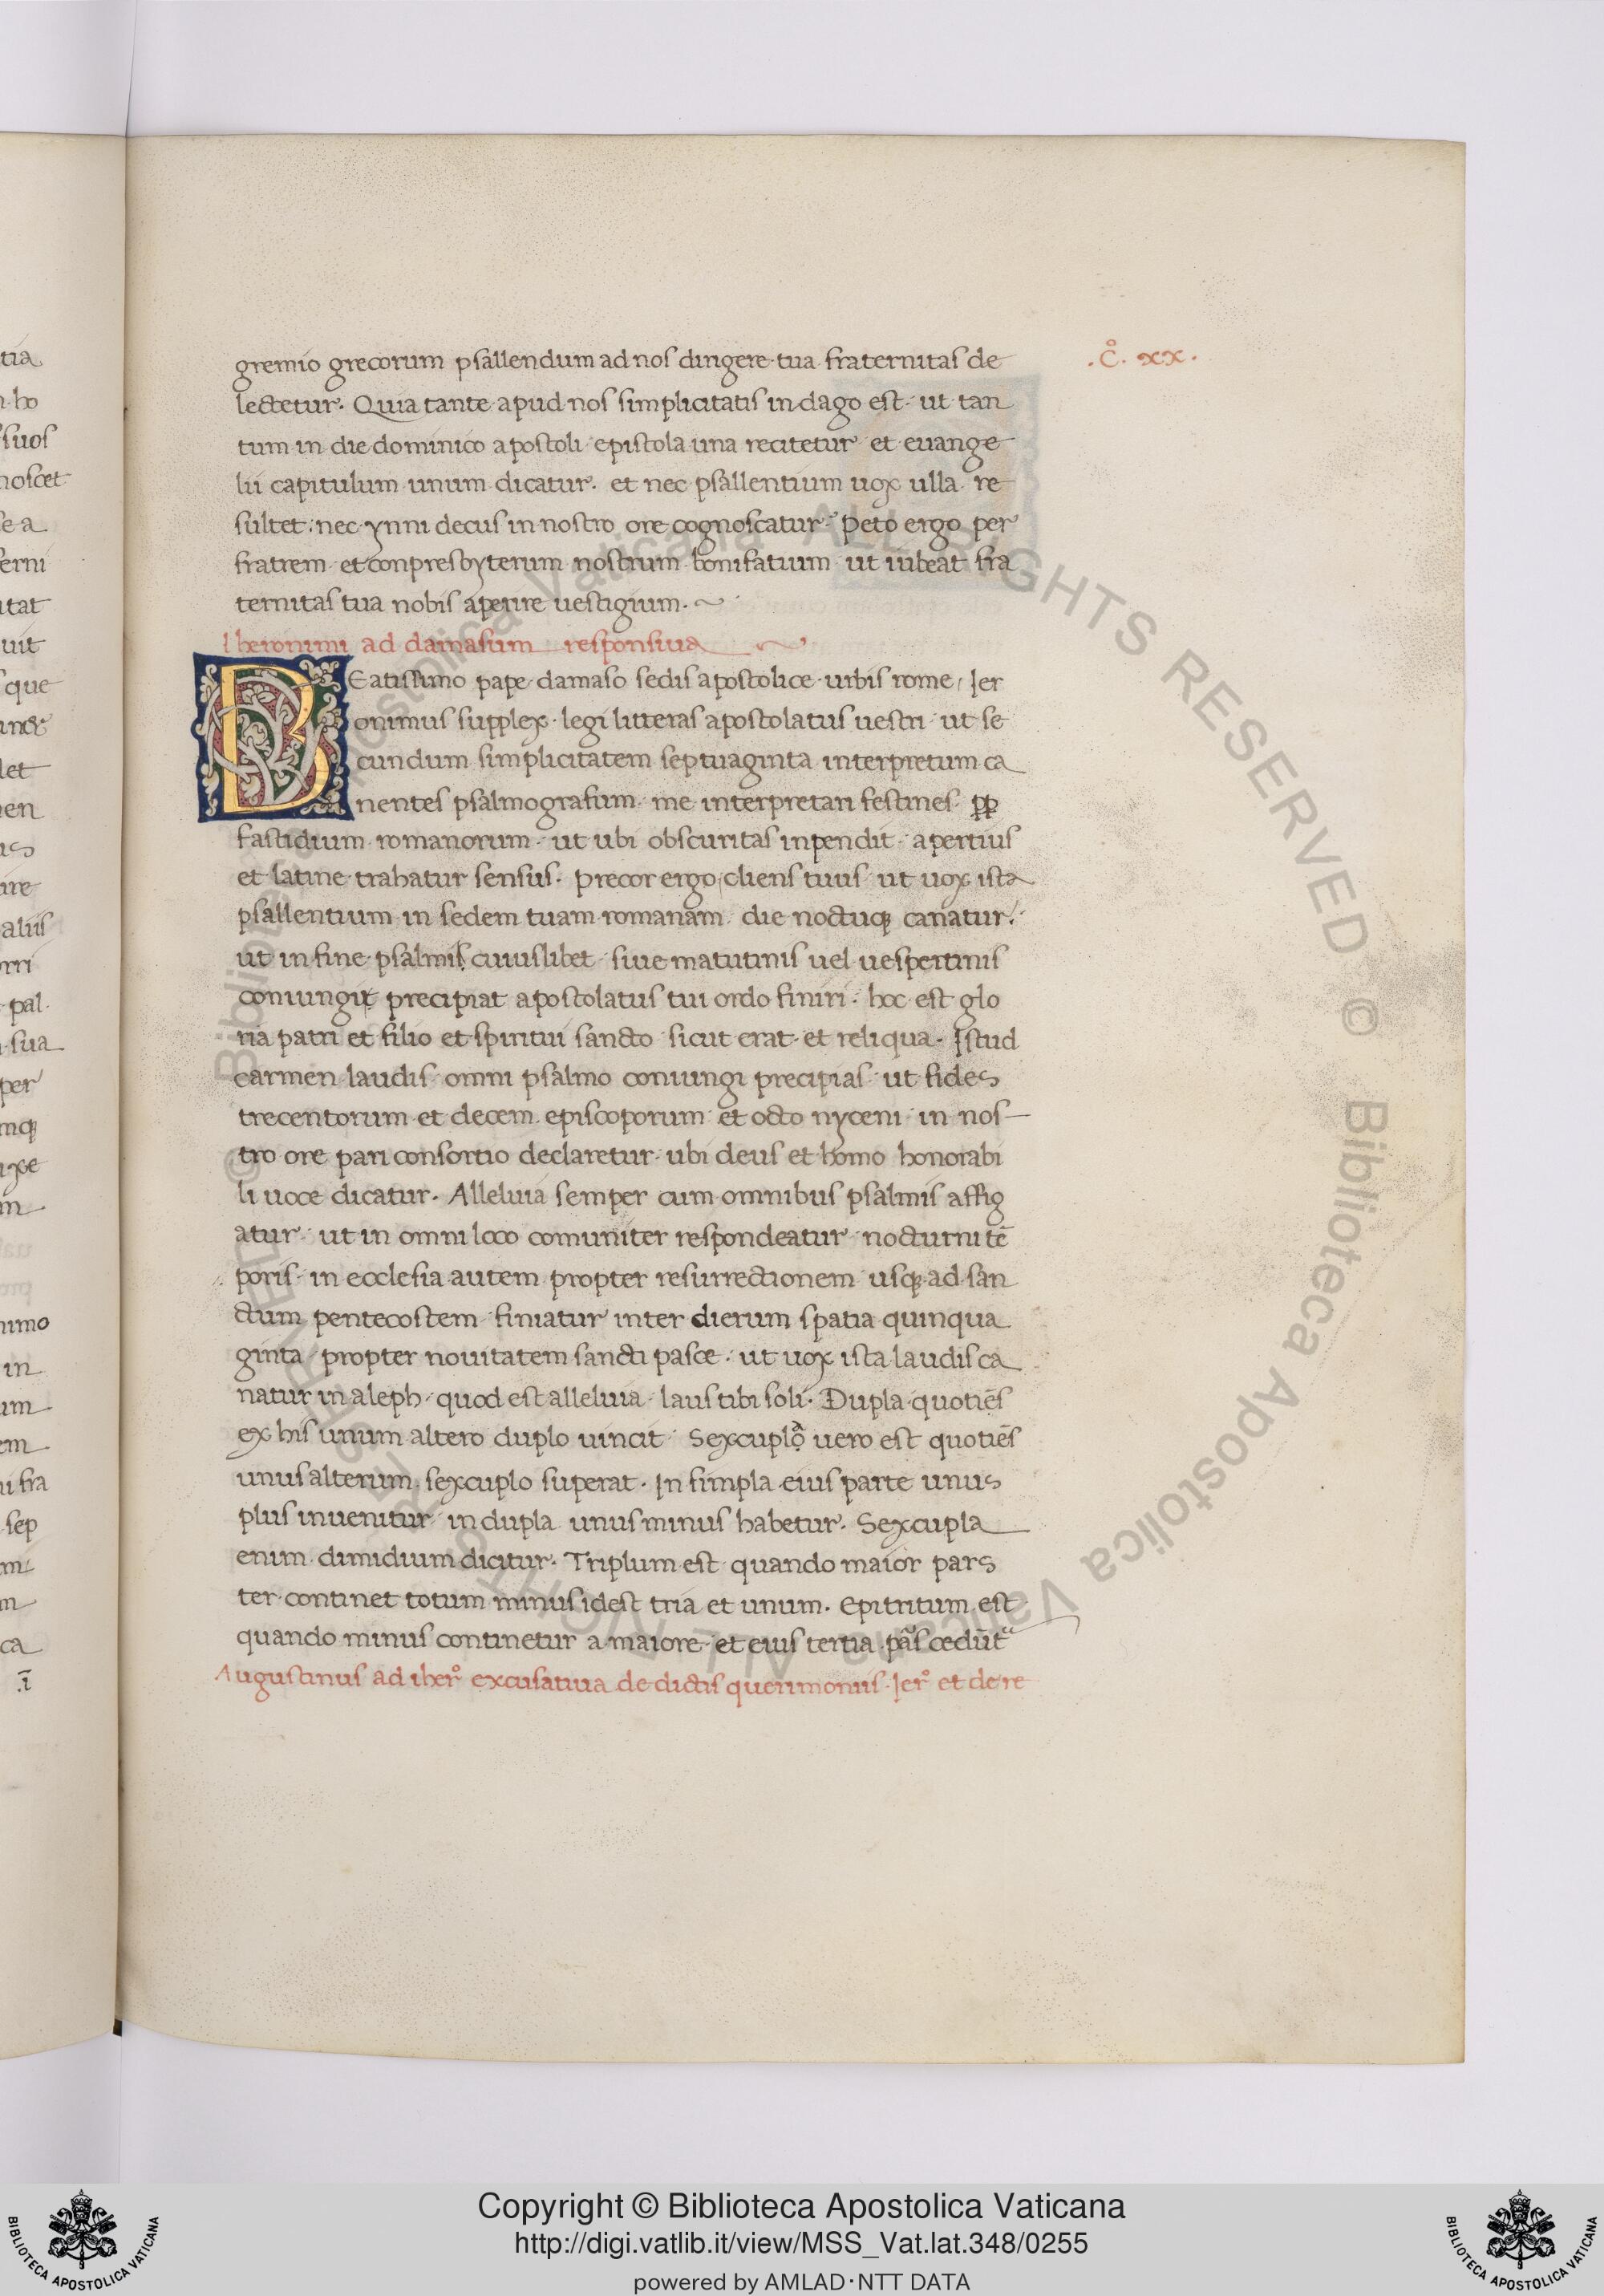 gremio grecorum psallendum ad nos dirigere tua fraternitas de
.c̊. xx.
lectetur. Quia tante apud nos simplicitatis indago est. ut tan
tum in die dominico apostoli epistola una recitetur et euange
lii capitulum unum dicatur. et nec psallentium uox ulla re
sultet: nec ynni decus in nostro ore cognoscatur. Peto ergo per
fratrem et conpresbyterum nostrum bonifatium ut iubeat fra
ternitas tua nobis aperire uestigium.
Iheronimi ad damasum responsiua
BEatissimo pape damaso sedis apostolice urbis rome, Ier
onimus supplex. legi litteras apostolatus uestri ut se
cundum simplicitatem septuaginta interpretum ca
nentes psalmografum me interpretari festines pp
fastidium romanorum ut ubi obscuritas inpendit apertius
et latine trahatur sensus. Precor ergo cliens tuus ut uox ista
psallentium in sedem tuam romanam die noctuq; canatur.
ut in fine psalmis cuiuslibet siue matutinis uel uespertinis
coniungit precipiat apostolatus tui ordo finiri. hoc est glo
ria patri et filio et spiritui sancto sicut erat et reliqua. Istud
carmen laudis omni psalmo coniungi precipias ut fides
trecentorum et decem episcoporum et octo nyceni in nos
tro ore pari consortio declaretur ubi deus et homo honorabi
li uoce dicatur. Alleluia semper cum omnibus psalmis affig
atur ut in omni loco comuniter respondeatur nocturni tē
poris in ecclesia autem propter resurrectionem usq; ad san
ctum pentecostem finiatur inter dierum spatia quinqua
ginta propter nouitatem sancti pasce. ut uox ista laudis ca
natur in aleph quod est alleluia laus tibi soli. Dupla quotiēs
ex his unum altero duplo uincit Sexcupla uero est quotiēs
unus alterum sexcuplo superat. In simpla eius parte unus
plus inuenitur in dupla unus minus habetur. Sexcupla
enim dimidium dicitur. Triplum est quando maior pars
ter continet totum minus idest tria et unum. Epitritum est
quando minus continetur a maiore et eius tertia pars cedūt
Augustinus ad iher̊ excusatiua de dictis querimoniis Ier̊ et de re
© Biblioteca Apostolica Vaticana ALL RIGHTS RESERVED © Biblioteca Apostolica Vaticana ALL RIGHTS RESERVED
Copyright © Biblioteca Apostolica Vaticana
http://digi.vatlib.it/view/MSS_Vat.lat.348/0255
powered by AMLAD·NTT DATA
BIBLIOTECA APOSTOLICA VATICANA
BIBLIOTECA APOSTOLICA VATICANA